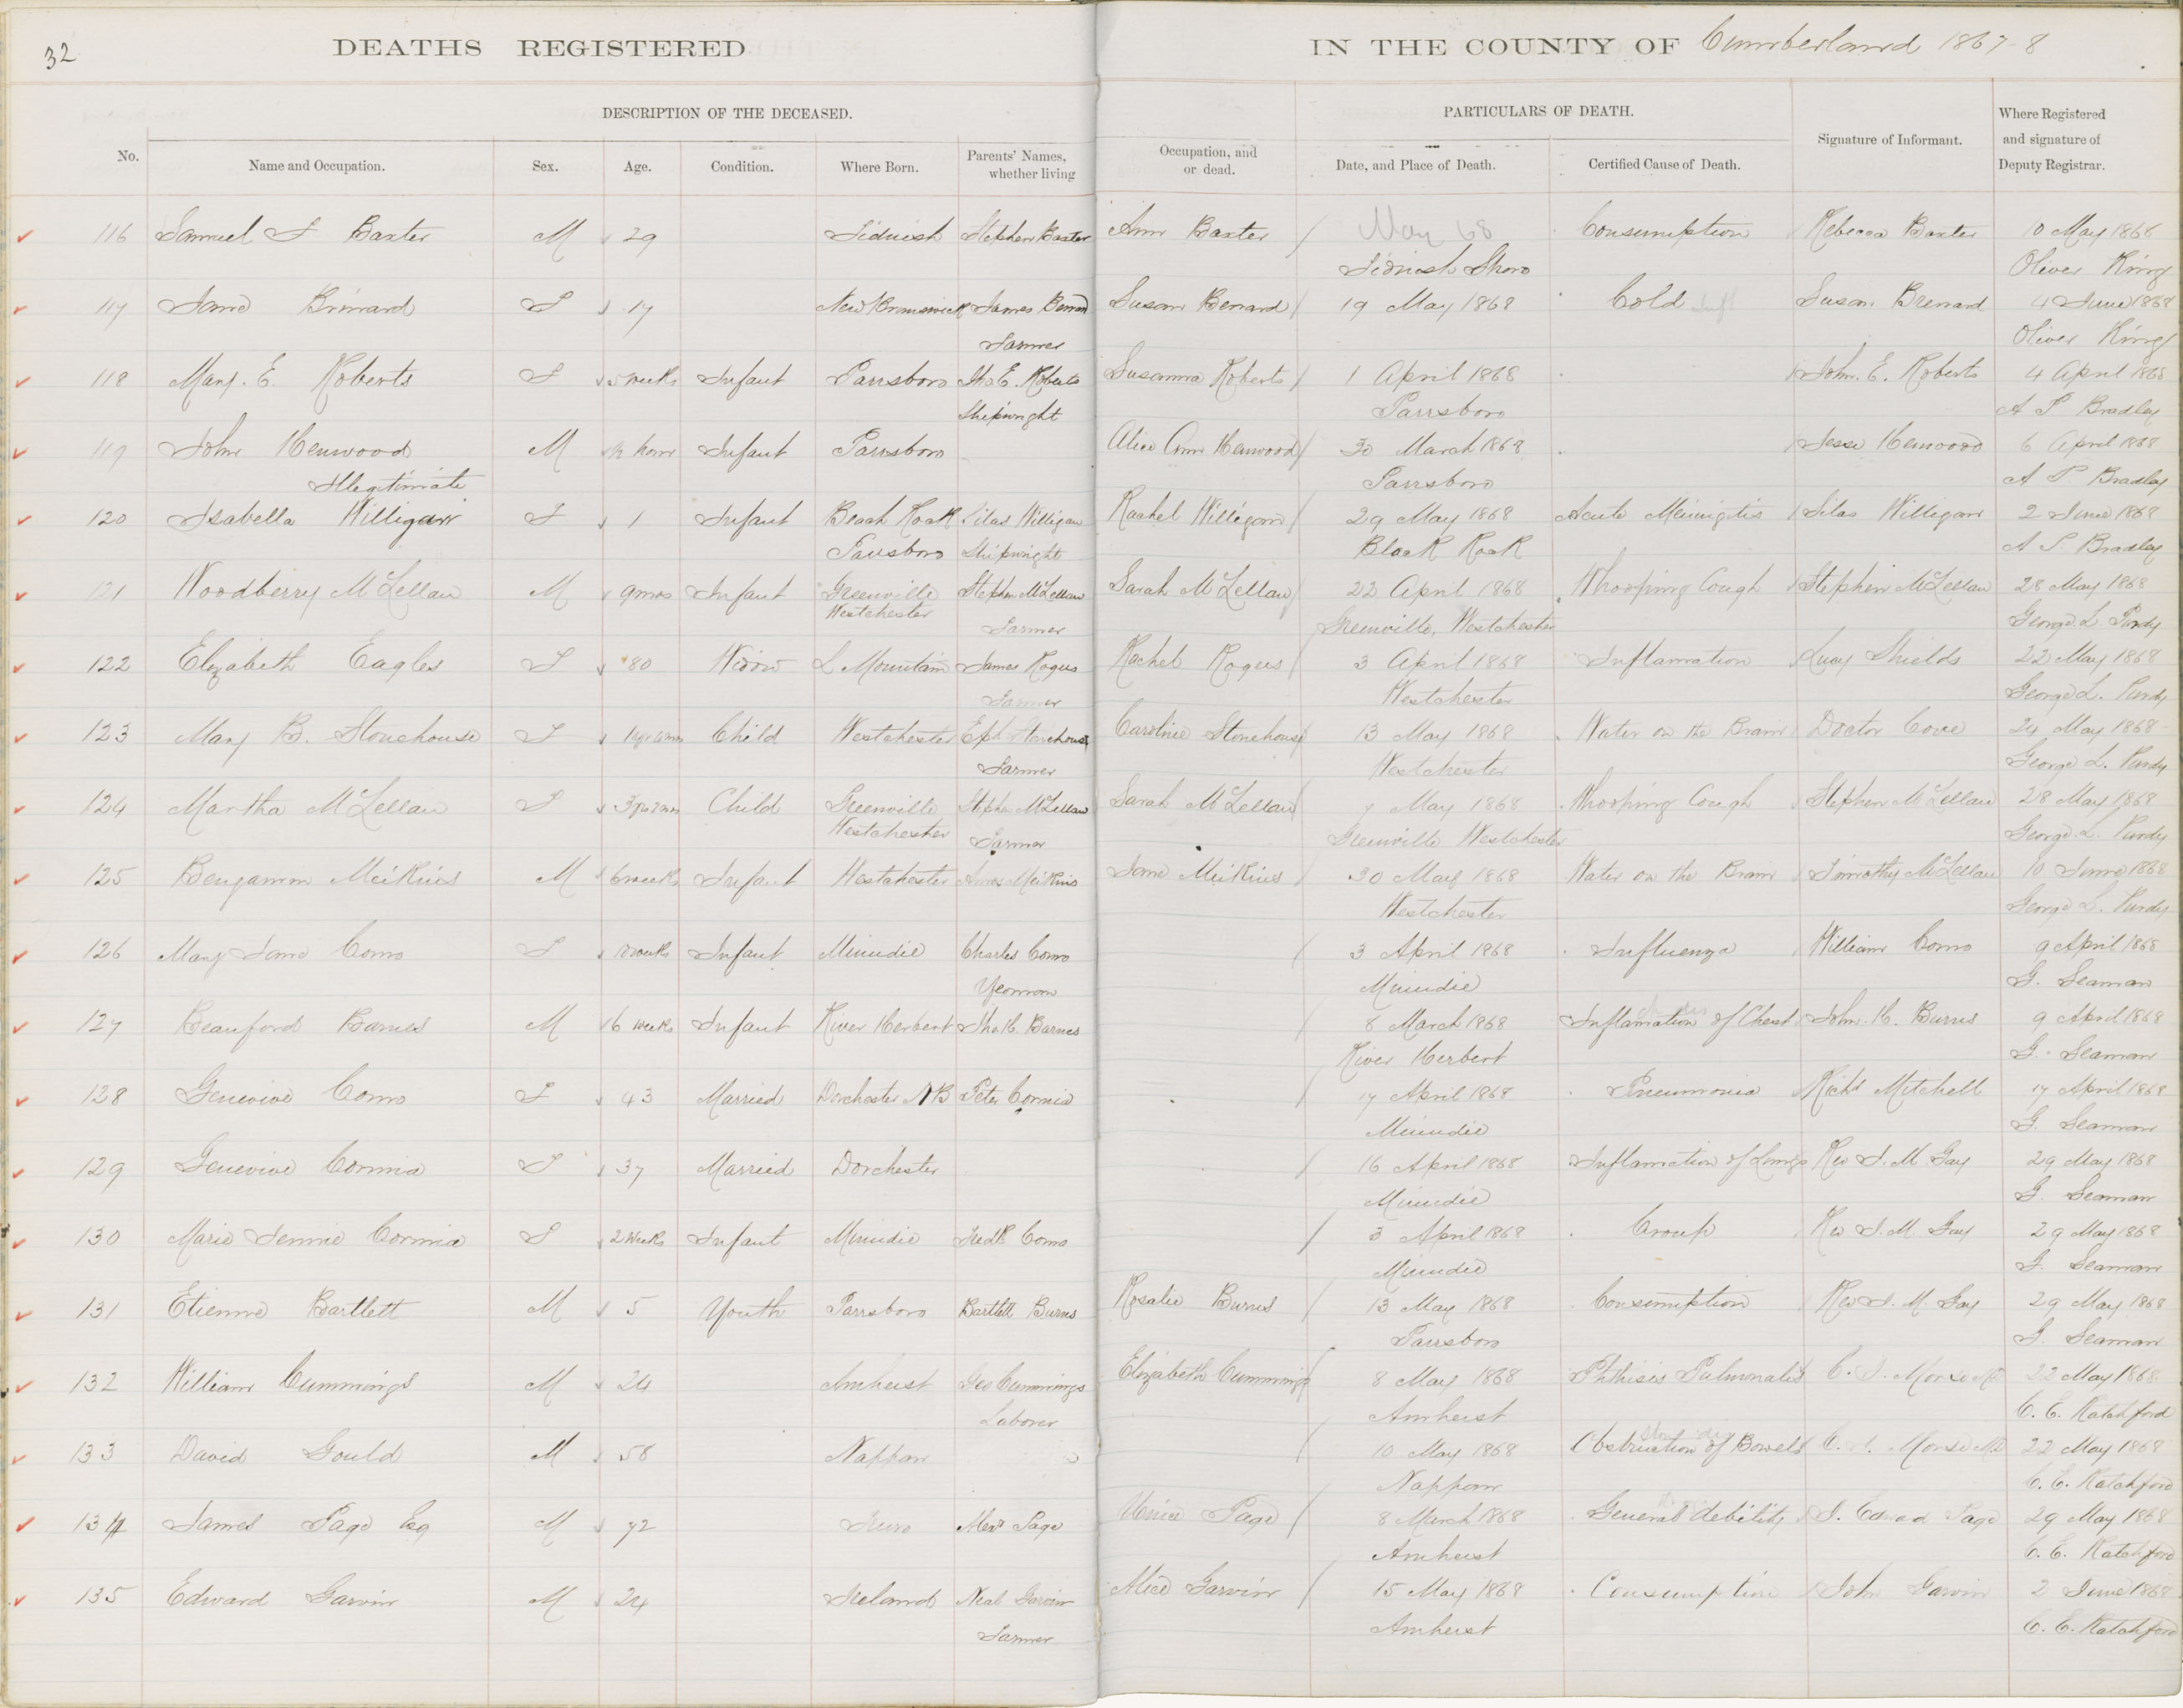 32
DEATHS REGISTERED IN THE COUNTY OF Cumberland 1867-8
DESCRIPTION OF THE DECEASED. PARTICULARS OF DEATH.
No. Name and Occupation. Sex. Age. Condition. Where Born. Parents' Names, whether living Occupation, and or dead. Date, and Place of Death. Certified Cause of Death. Signature of Informant. Where Registered and signature of Deputy Registrar.
116 Samuel F Baxter M 29 Tidnish Stephen Baxter Ann Baxter May 68 Consumption Rebecca Baxter 10 May 1868
Tidnish Shore Oliver King
117 Jane Brinard F 17 New Brunswick James Susan Benard 19 May 1868 Cold Susan Brenard 4 June 1868
Farmer Oliver King
118 Mary. E. Roberts F 5 weeks Infant Parrsboro Jno E. Roberts Susanna Roberts 1 April 1868 John. E. Roberts 4 April 1868
Shipwright Parrsboro A P Bradley
119 John Henwood M ½ hour Infant Parrsboro Alice Ann Henwood 30 March 1868 Jesse Henwood 6 April 1868
Illegitimate Parrsboro A P Bradley
120 Isabella Willigan F 1 Infant Beach Rock Silas Willigan Rachel Willigan 29 May 1868 Acute Meningitis Silas Willigan 2 June 1868
Parrsboro Shipwright Black Rock A P. Bradley
121 Woodberry McLellan M 9 mos Infant Greenville Stephen McLellan Sarah McLellan 22 April 1868 Whooping Cough Stephen McLellan 28 May 1868
Westchester Farmer Greenville, Westchester George L. Purdy
122 Elizabeth Eagles F 80 Widow L Mountain James Rogus Rachel Rogus 3 April 1868 Inflamation Lucy Shields 22 May 1868
Farmer Westchester George L. Purdy
123 Mary B. Stonehouse F Child Westchester Eph Stonehouse Caroline Stonehouse 13 May 1868 Water on the Brain Doctor Cove 24 May 1868
Farmer Westchester George L. Purdy
124 Martha McLellan F 3 yrs 2 mos Child Greenville Stephen McLellan Sarah McLellan 7 May 1868 Whooping Cough Stephen McLellan 28 May 1868
Westchester Farmer Greenville Westchester George L. Purdy
125 Bengamon Meikins M 6 weeks Infant Westchester Amos Meikins Jane Meikins 30 May 1868 Water on the Brain Timothy McLellan 10 June 1868
Westchester George L. Purdy
126 Mary Jane Como F 10 weeks Infant Minudie Charles Como 3 April 1868 Influenza William Como 9 April 1868
Yeoman Minudie G. Seaman
127 Beauford Barnes M 6 weeks Infant River Herbert Jno H. Barnes 8 March 1868 Inflamation of Chest John. H. Burns 9 April 1868
River Herbert G. Seaman
128 Genevive Como F 43 Married Dorchester NB Peter Cormia 17 April 1868 Pneumonia Richd Mitchell 17 April 1868
Minudie G. Seaman
129 Genevive Cormia F 37 Married Dorchester 16 April 1868 Inflamation of Lungs Rev J. M Gay 29 May 1868
Minudie G. Seaman
130 Marie Jennie Cormia F 2 Weeks Infant Minudie Fredk Como 3 April 1868 Croup Rev J. M Gay 29 May 1868
Minudie G. Seaman
131 Etienne Bartlett M 5 Youth Parrsboro Bartlett Burns Rosalie Burns 13 May 1868 Consumption Rev J. M. Gay 29 May 1868
Parrsboro G. Seaman
132 William Cummings M 24 Amherst Geo Cummings Elizabeth Cummings 8 May 1868 Phthisis Pulmonalis C. J. Morse MD 22 May 1868
Laborer Amherst C. E. Ratchford
133 David Gould M 58 Nappan 10 May 1868 Obstruction of Bowels C. J. Morse MD 22 May 1868
Nappan C. E. Ratchford
134 James Page Esq M 72 Truro Alexr Page Unice Page 8 March 1868 General debility J. Edward Page 29 May 1868
Amherst C. E. Ratchford
135 Edward Garvin M 24 Ireland Neal Garvin Alice Garvin 15 May 1868 Consumption John Garvin 2 June 1868
Farmer Amherst C. E. Ratchford